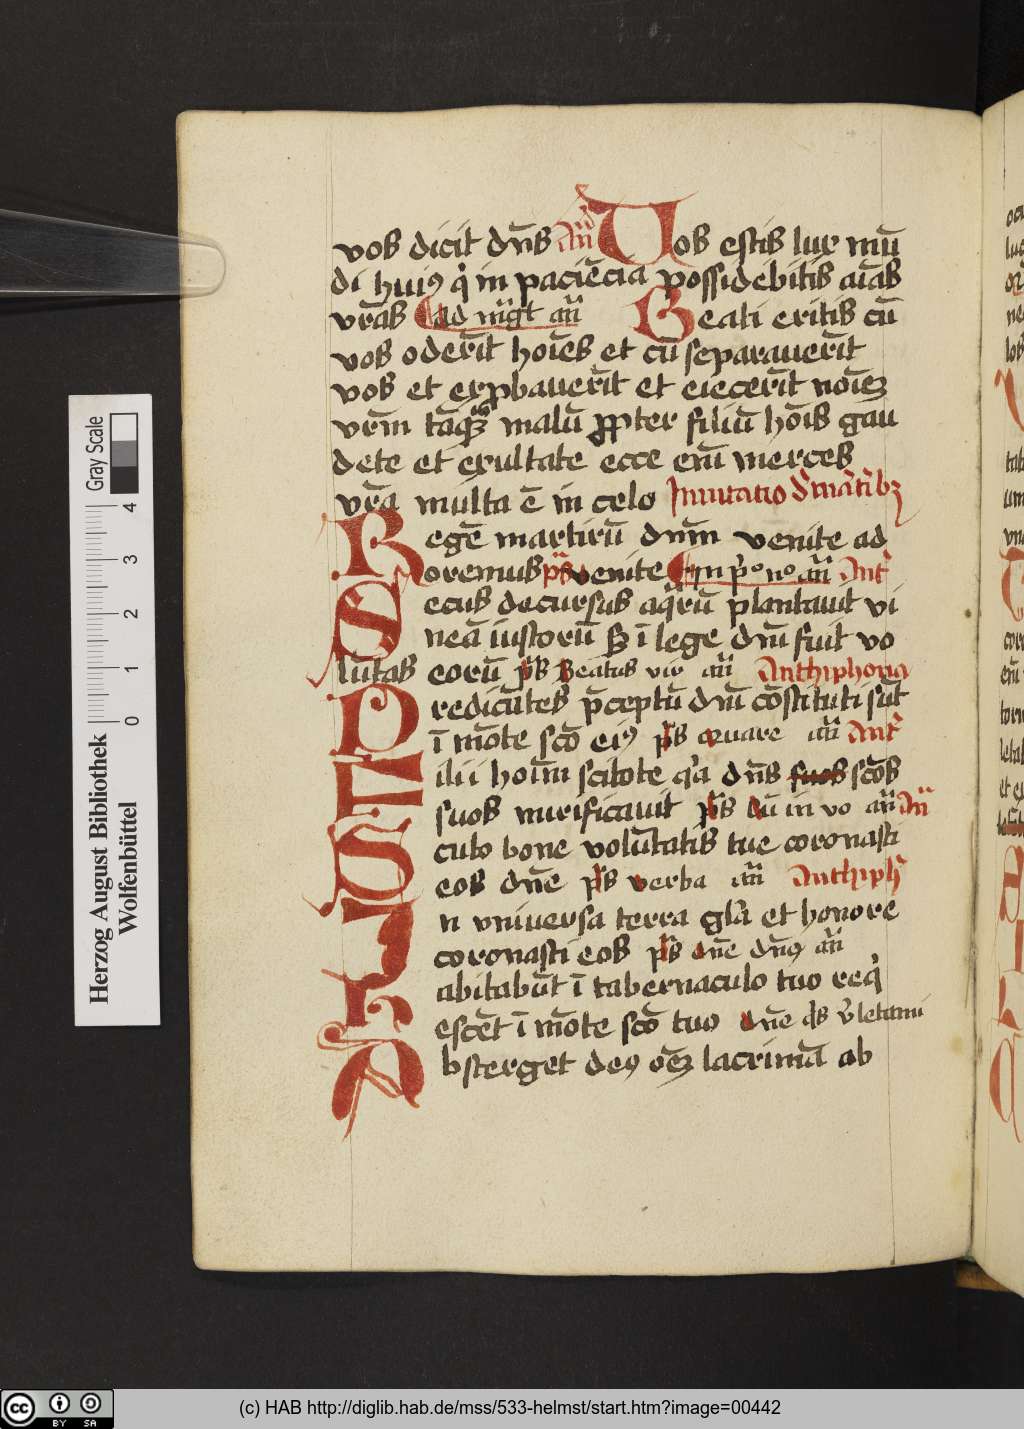 vos dicit dn̄s an̄ Uos estis lux mū
di huiꝯ q̇ in paciēcia possidebitis aīas
vr̄as ad mg̃t an̄ Beati eritis cū
vos oderīt hoīes et cū separauerīt
vos et exprobauerīt et eiecerīt noīeꝫ
vrm̄ tāqꝫ malū ꝓpter filiū hoīs gau
dete et exultate ecce enī merces
vr̄a multa ē in celo Inuitatio d' mr̄ibꝫ
Regē martirū dnm̄ venite ad
oremus ps̄ venite In p̊ no an̄ Ant̄
Secus decursus aq̄rū plantauit vi
neā iustorū sꝫ ī lege dnī fuit vo
lūtas eorū ps̄ Beatus vir an̄ Anthiphona
Predicātes p̄ceptū dnī cōstituti sūt
ī mōte scō eiꝯ ps̄ Quare an̄ Ant̄
Filii hoīm scitote q'a dn̄s suos scōs
suos mirificauit ps̄ Cū in vo an̄ An̄
Scuto bone volūtatis tue coronasti
eos dn̄e ps̄ verba an̄ Anthiph̄
In vniuersa terra gl̄a et honore
coronasti eos ps̄ dn̄e dn̄ꝯ an̄
Habitabūt ī tabernaculo tuo req̇
escēt ī mōte scō tuo dn̄e q̇s
Absterget deꝯ oēꝫ lacrimā ab
Gray Scale
0 1 2 3 4
Herzog August Bibliothek
Wolfenbüttel
(c) HAB http://diglib.hab.de/mss/533-helmst/start.htm?image=00442
cc BY SA